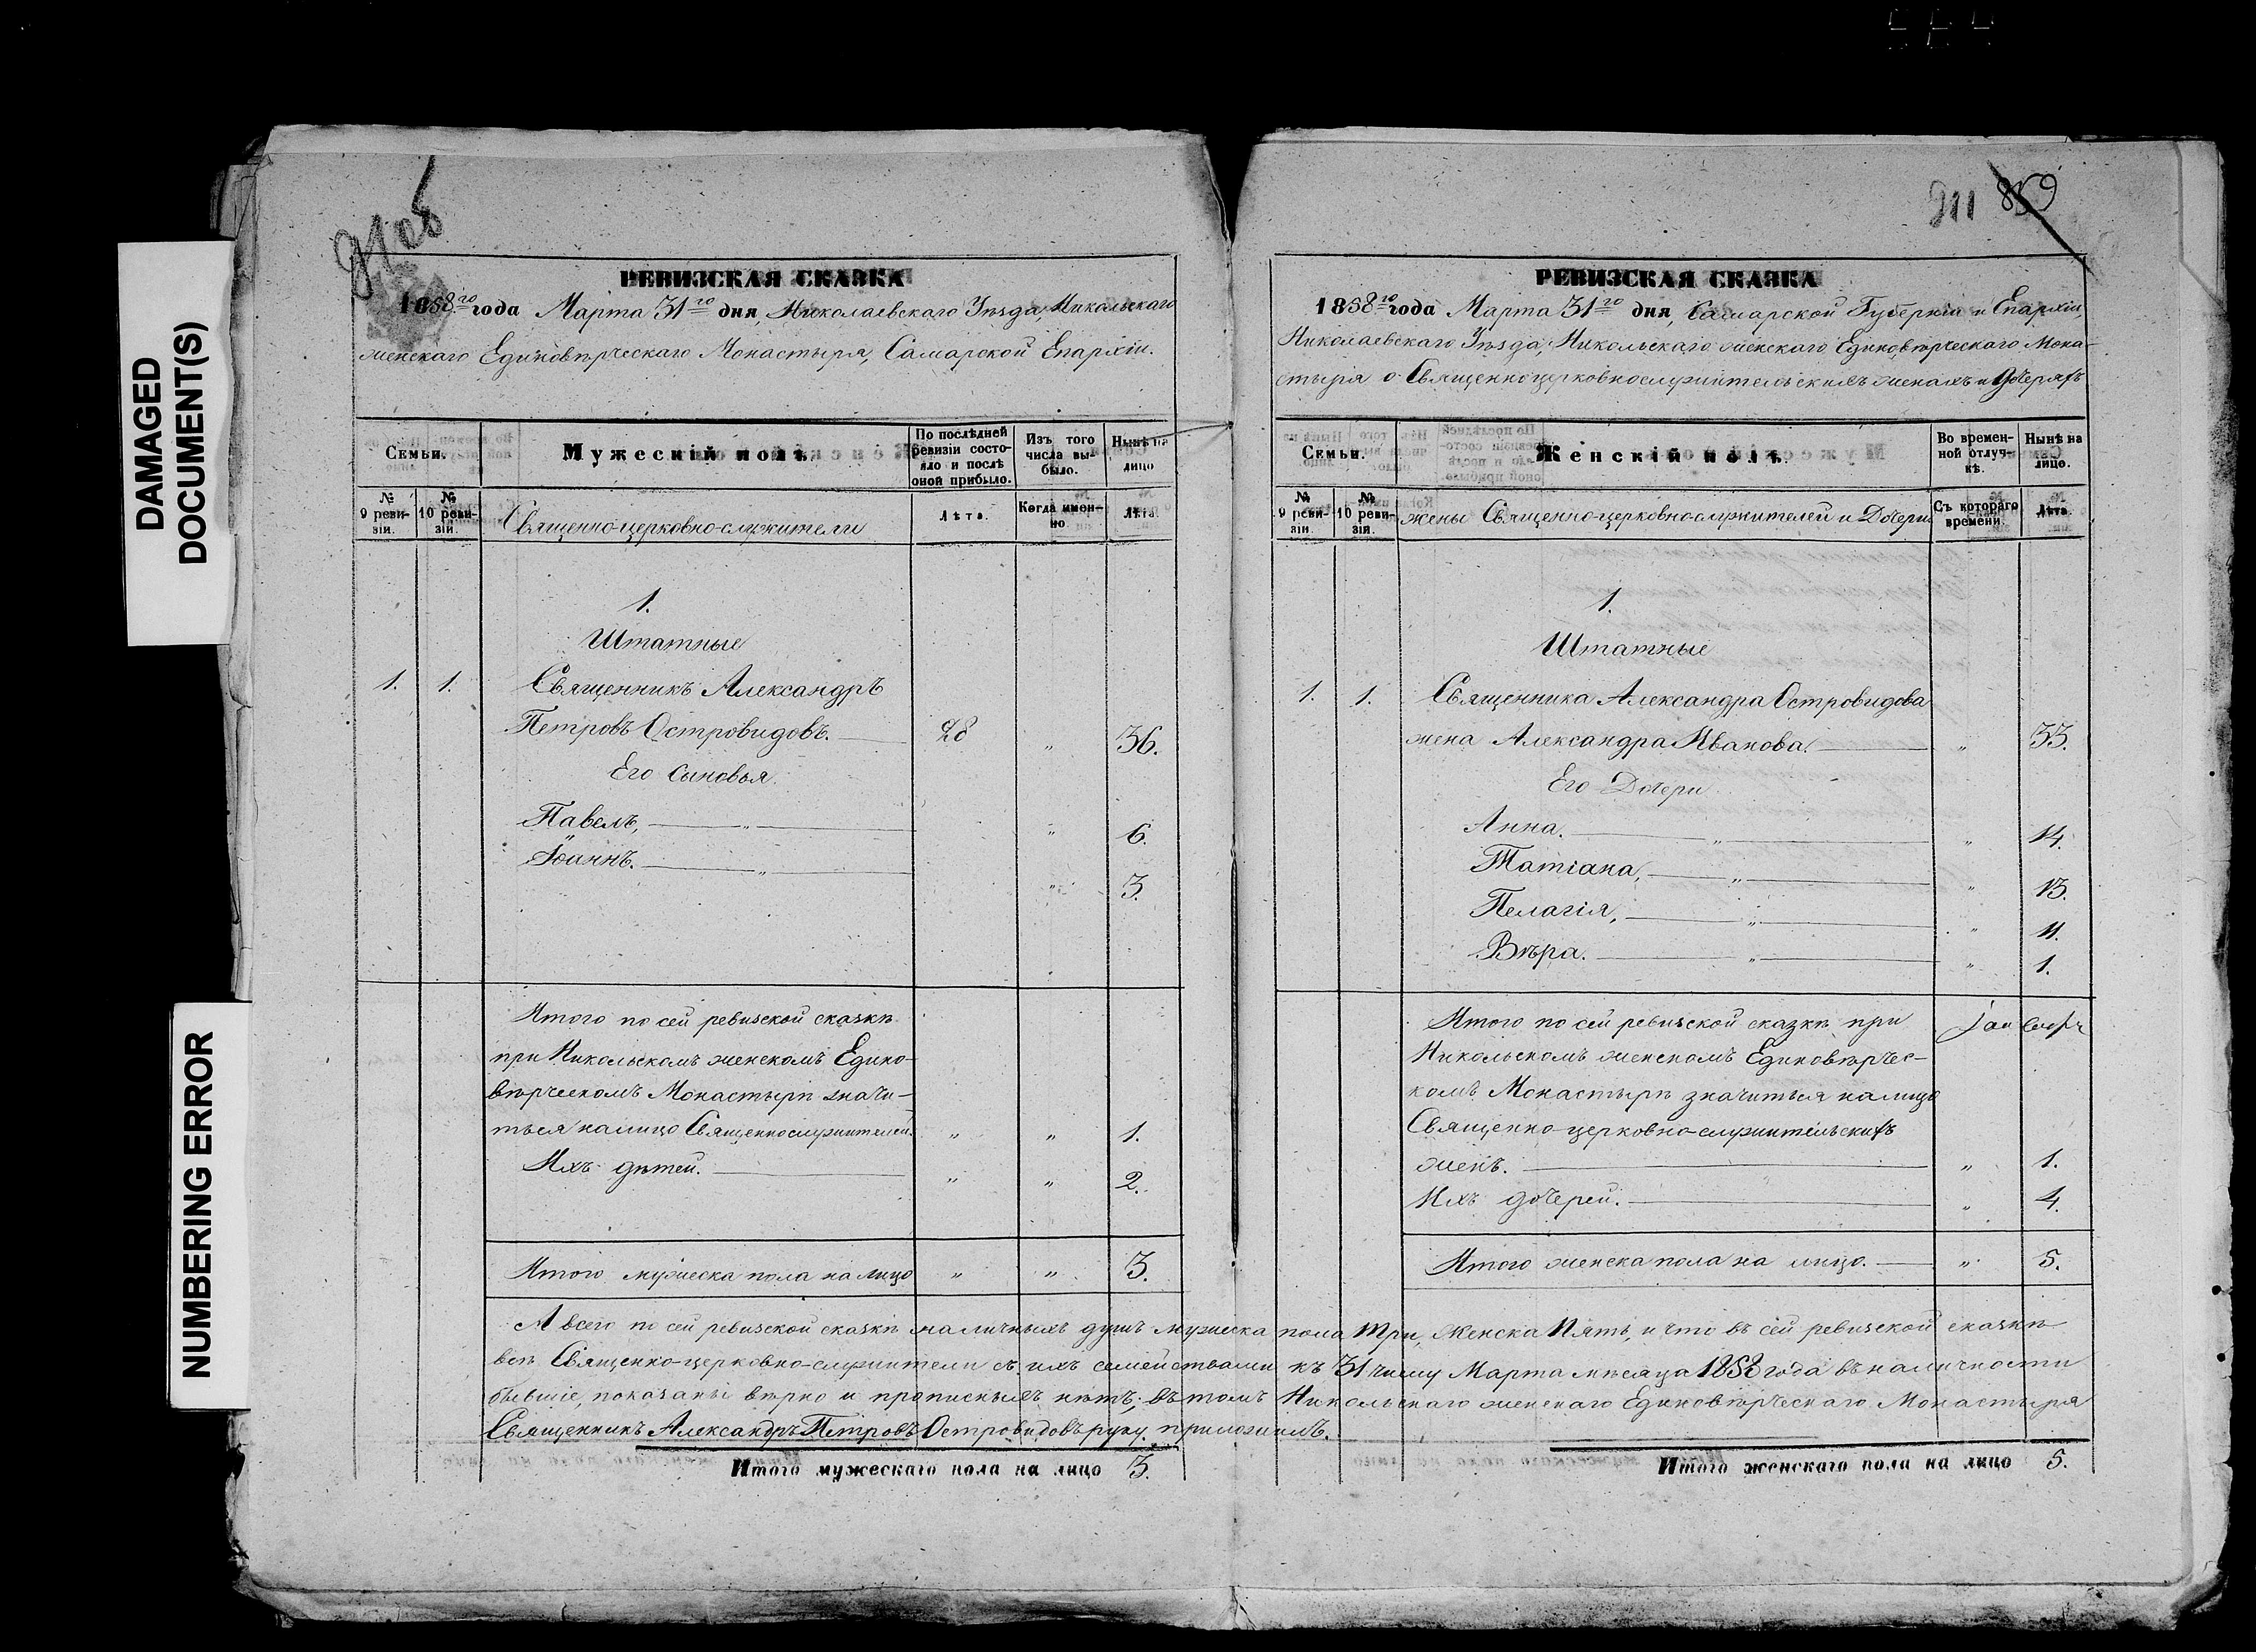 DAMAGED
DOCUMENT(S)
NUMBERING ERROR
910об
РЕВИЗСКАЯ СКАЗКА
1858го года Марта 31го дня, Николаевскаго Уѣзда, Никольскаго
женскаго Единовѣрческаго Монастыря, Самарской Епархіи.
Семьи.
Мужескій полъ.
По послѣдней
ревизіи состо-
яло и послѣ
оной прибыло.
Изъ того
числа вы-
было.
Нынѣ на
лицо
№
9 реви-
зіи.
№
10 реви-
зіи.
Священно-церковно-служители
Лѣта.
Когда имен-
но
Лѣта.
1.
Штатные
1. 1. Священникъ Александръ
Петровъ Островидовъ. 28 „ 36.
Его сыновья
Павелъ, „ „ 6.
Іоаннъ. „ „ 3.
Итого по сей ревизской сказкѣ
при Никольскомъ женскомъ Едино-
вѣрческомъ Монастырѣ значи-
ться налицо Священнослужителей. „ „ 1.
Ихъ дѣтей. „ „ 2.
Итого мужеска пола на лицо „ „ 3.
911 859
РЕВИЗСКАЯ СКАЗКА
1858го года Марта 31го дня, Самарской Губерніи и Епархіи,
Николаевскаго Уѣзда, Никольскаго женскаго Единовѣрческаго Мона-
стыря о Священноцерковнослужительскихъ женахъ и дочеряхъ
Семьи.
Женскій полъ.
Во времен-
ной отлуч-
кѣ.
Нынѣ на
лице.
№
9 реви-
зіи.
№
10 реви-
зіи.
жены Священно-церковно-служителей и Дочери
Съ котораго
времени.
Лѣта
1.
Штатные
1. 1. Священника Александра Островидова
жена Александра Иванова. „ 35.
Его Дочери
Анна. „ „ 14.
Татіана, „ „ 13.
Пелагія, „ „ 11.
Вѣра. „ „ 1.
Итого по сей ревизской сказкѣ при
Никольскомъ женскомъ Единовѣрчес-
комъ Монастырѣ значиться налицо
Священно-церковно-служительскихъ
женъ. „ 1.
Ихъ дочерей. „ 4.
Итого женска пола на лицо. „ 5.
А всего по сей ревизской сказкѣ наличныхъ душъ мужеска пола три, женска пять, и что въ сей ревизской сказкѣ
всѣ Священно-церковно-служители съ ихъ семействами къ 31 числу Марта мѣсяца 1858 года въ наличности
бывшіе, показаны вѣрно и прописныхъ нѣтъ; въ томъ Никольскаго женскаго Единовѣрческаго Монастыря
Священникъ Александръ Петровъ Островидовъ руку приложилъ.
Итого мужескаго пола на лицо 3.
Итого женскаго пола на лицо 5.